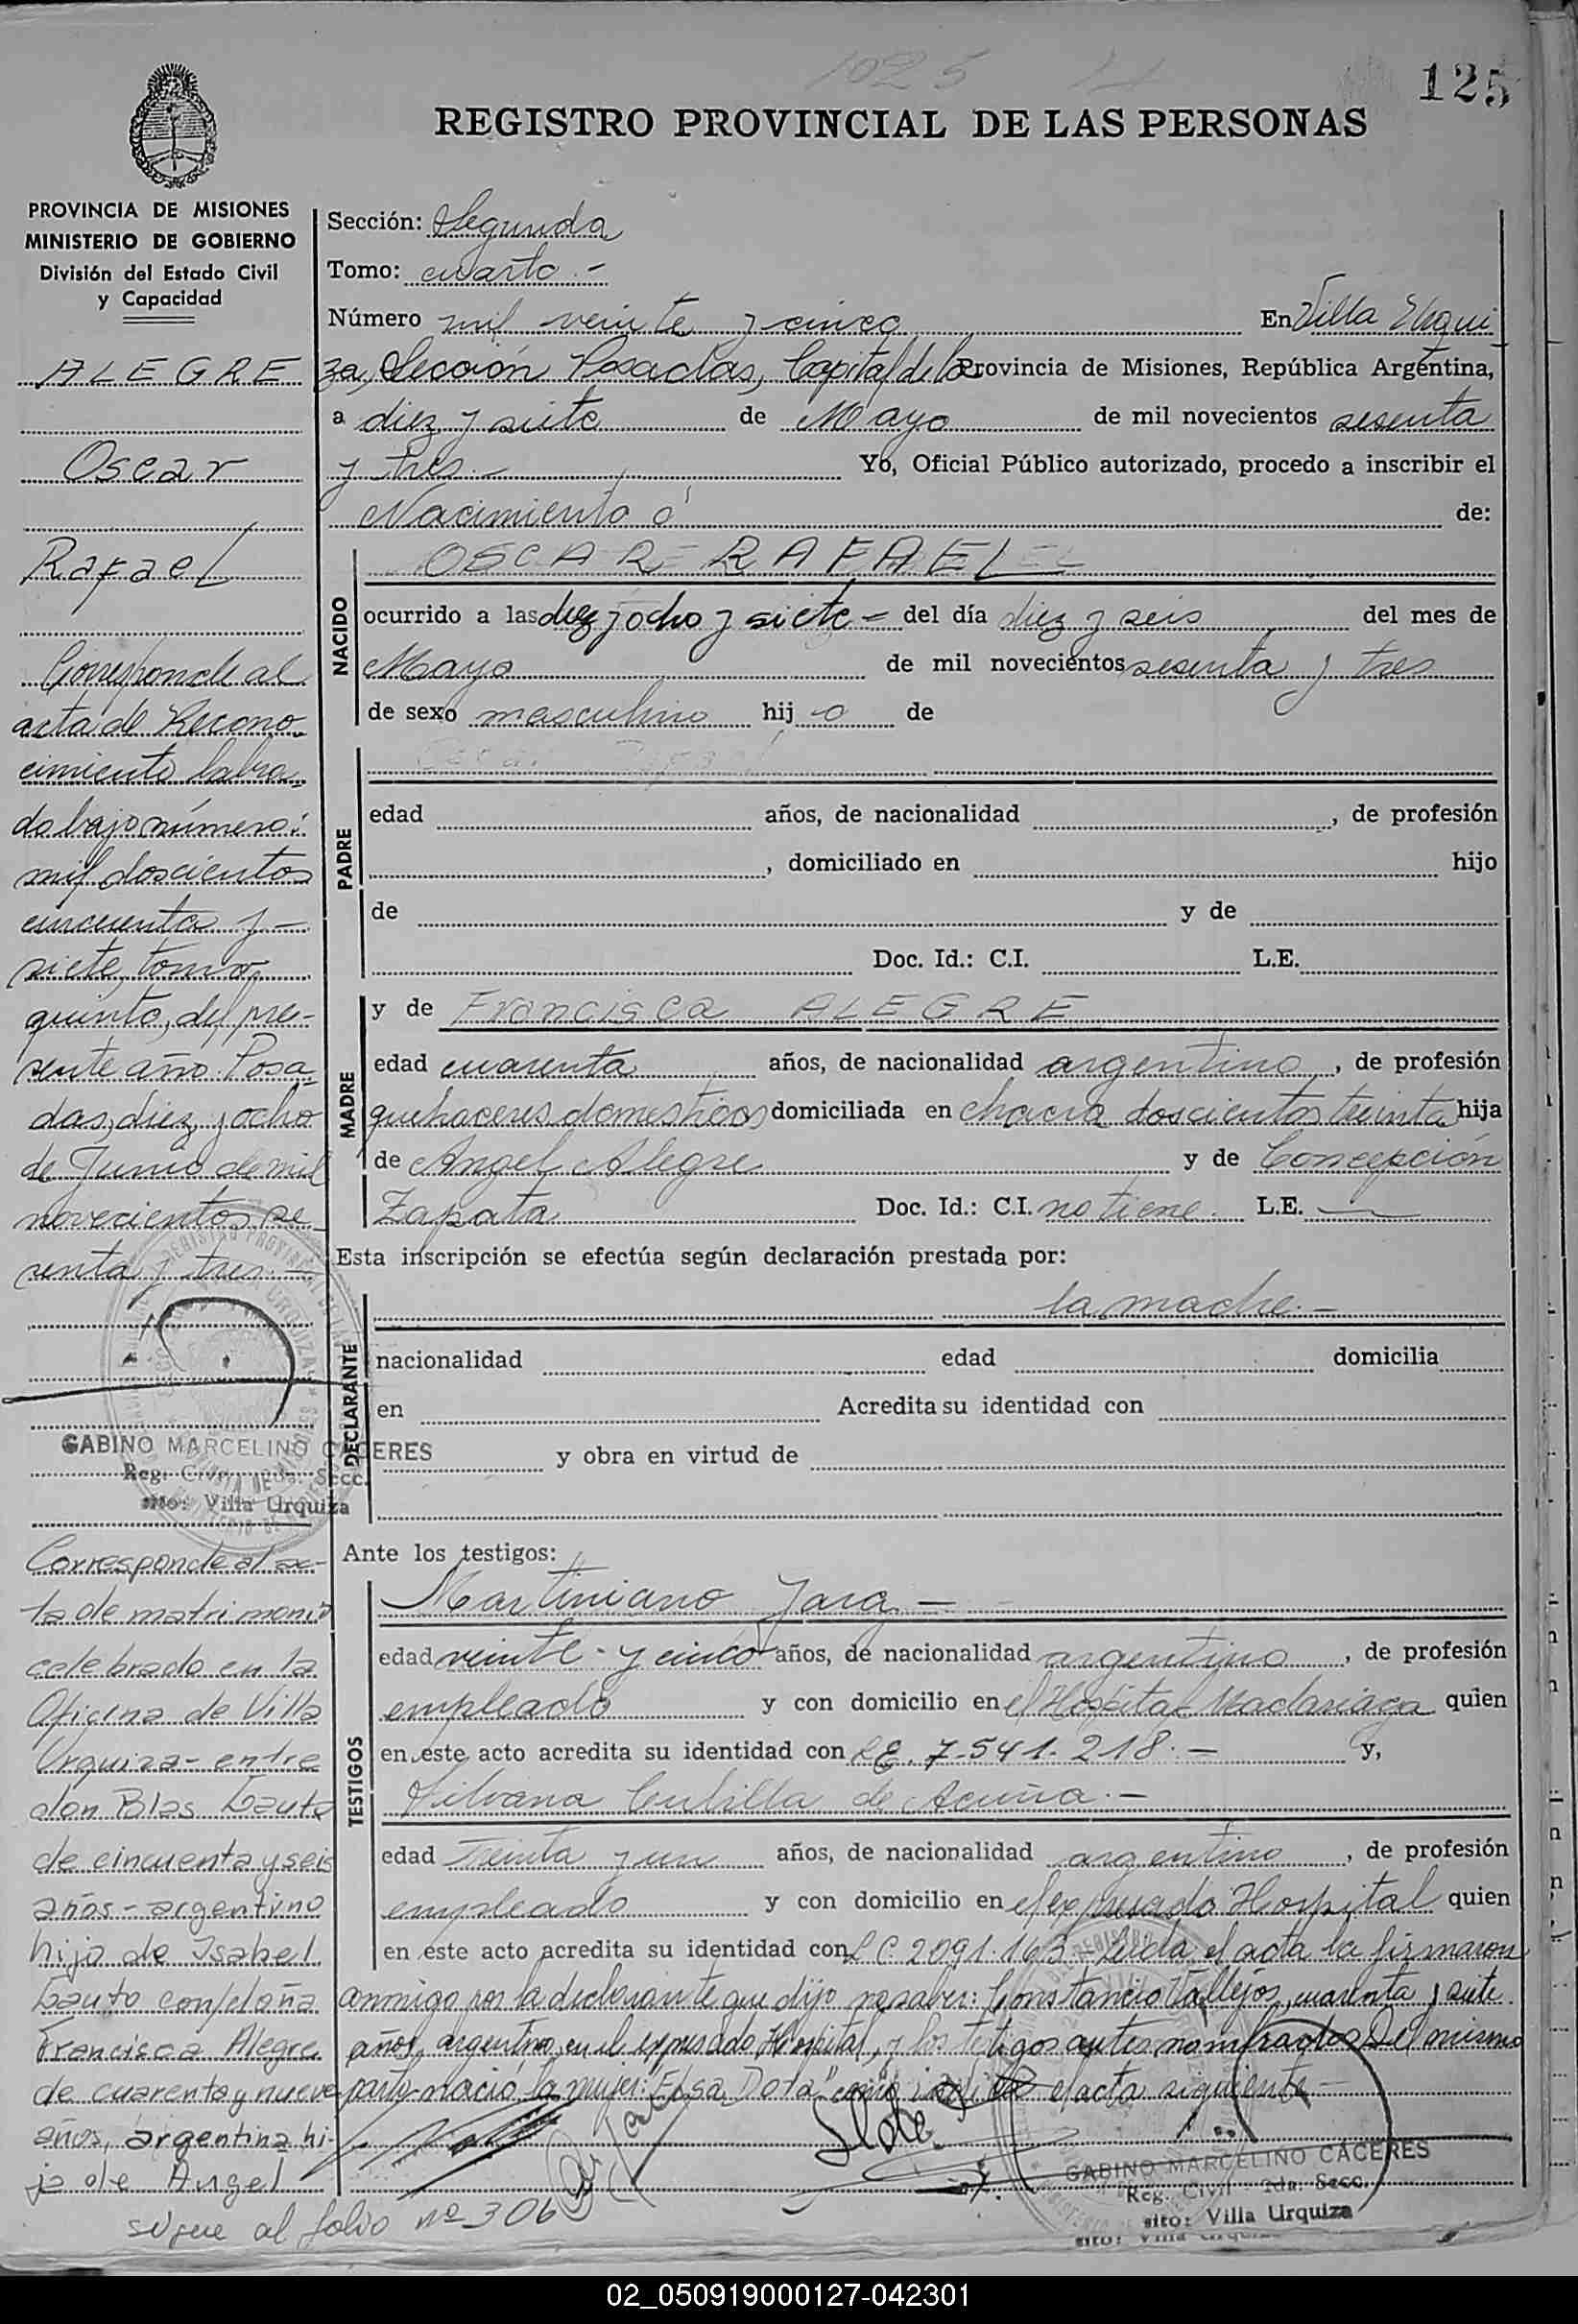 1025
125
REGISTRO PROVINCIAL DE LAS PERSONAS
PROVINCIA DE MISIONES
MINISTERIO DE GOBIERNO
División del Estado Civil
y Capacidad
ALEGRE
Oscar
Rafael
Corresponde al
acta de Recono-
cimiento labra-
do bajo número:
mil doscientos
cincuenta y -
siete, tomo,
quinto, del pre-
sente año. Posa-
das, diez y ocho
de Junio de mil
novecientos se-
senta y tres. -
GABINO MARCELINO CACERES
Reg. Civil 2da. Secc.
sito: Villa Urquiza
Corresponde al ac-
ta de matrimonio
celebrado en la
Oficina de Villa
Urquiza - entre
don Blas Gauto
de cincuenta y seis
años - argentino
hijo de Isabel
Gauto con doña
Francisca Alegre
de cuarenta y nueve
años, argentina hi-
ja de Angel
sigue al folio nº 306
Sección: Segunda
Tomo: cuarto. -
Número mil veinte y cinco En Villa Urqui
za, Sección Posadas, Capital de la Provincia de Misiones, República Argentina,
a diez y siete de Mayo de mil novecientos sesenta
y tres. - Yo, Oficial Público autorizado, procedo a inscribir el
Nacimiento de:
NACIDO
OSCAR RAFAEL
ocurrido a las diez y ocho y siete - del día diez y seis del mes de
Mayo de mil novecientos sesenta y tres
de sexo masculino hijo de
PADRE
edad años, de nacionalidad , de profesión
, domiciliado en hijo
de y de
Doc. Id.: C.I. L.E.
MADRE
y de Francisca ALEGRE
edad cuarenta años, de nacionalidad argentina, de profesión
quehaceres domesticos domiciliada en chacra doscientos treinta hija
de Angel Alegre y de Concepción
Zapata Doc. Id.: C.I. no tiene. L.E. —
Esta inscripción se efectúa según declaración prestada por:
DECLARANTE
la madre. -
nacionalidad edad domicilia
en Acredita su identidad con
y obra en virtud de
Ante los testigos:
TESTIGOS
Martiniano Jara -
edad veinte - y cinco años, de nacionalidad argentino, de profesión
empleado y con domicilio en el Hospital Madariaga quien
en este acto acredita su identidad con L.E. 7.541.218. - y,
Silvana Cubilla de Acuña. -
edad treinta y un años, de nacionalidad argentino, de profesión
empleado y con domicilio en el expresado Hospital quien
en este acto acredita su identidad con L.C. 2091.163 - Leida el acta la firmaron
conmigo por la declarante que dijo no saber: Constancio Vallejos, cuarenta y siete
años, argentino, en el expresado Hospital, y los testigos antes nombrados. Del mismo
parto nacio la mujer: "Elsa Dora" como indica el acta siguiente -
GABINO MARCELINO CACERES
Reg. Civil 2da. Secc.
sito: Villa Urquiza
02_050919000127-042301